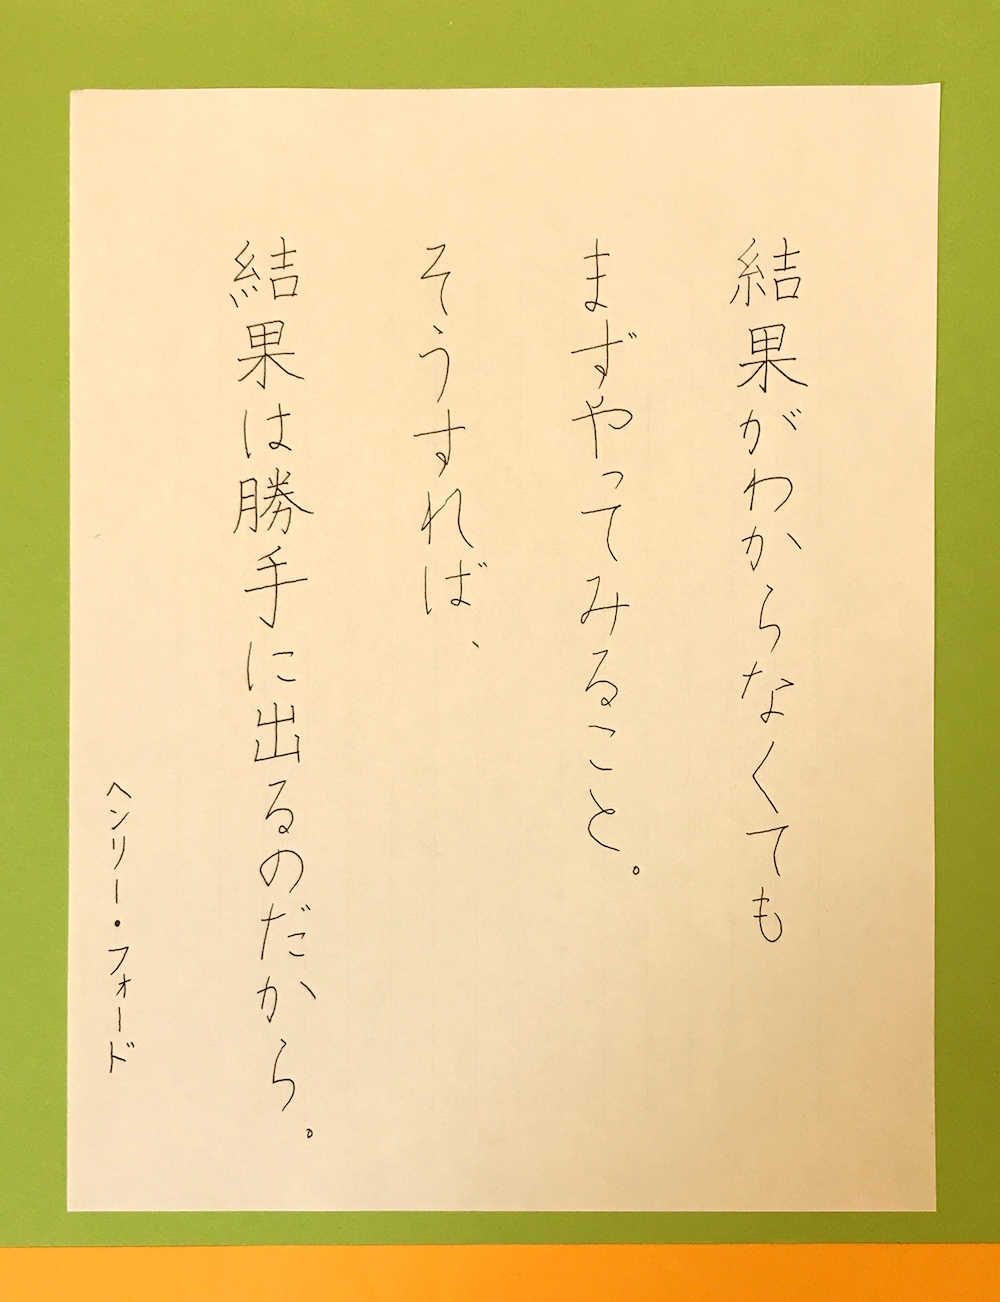 結果がわからなくても
まずやってみること。
そうすれば、
結果は勝手に出るのだから。
ヘンリー・フォード